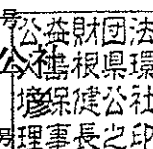 号公益財団法
公社島根県環
境保健公社
号理事長之印